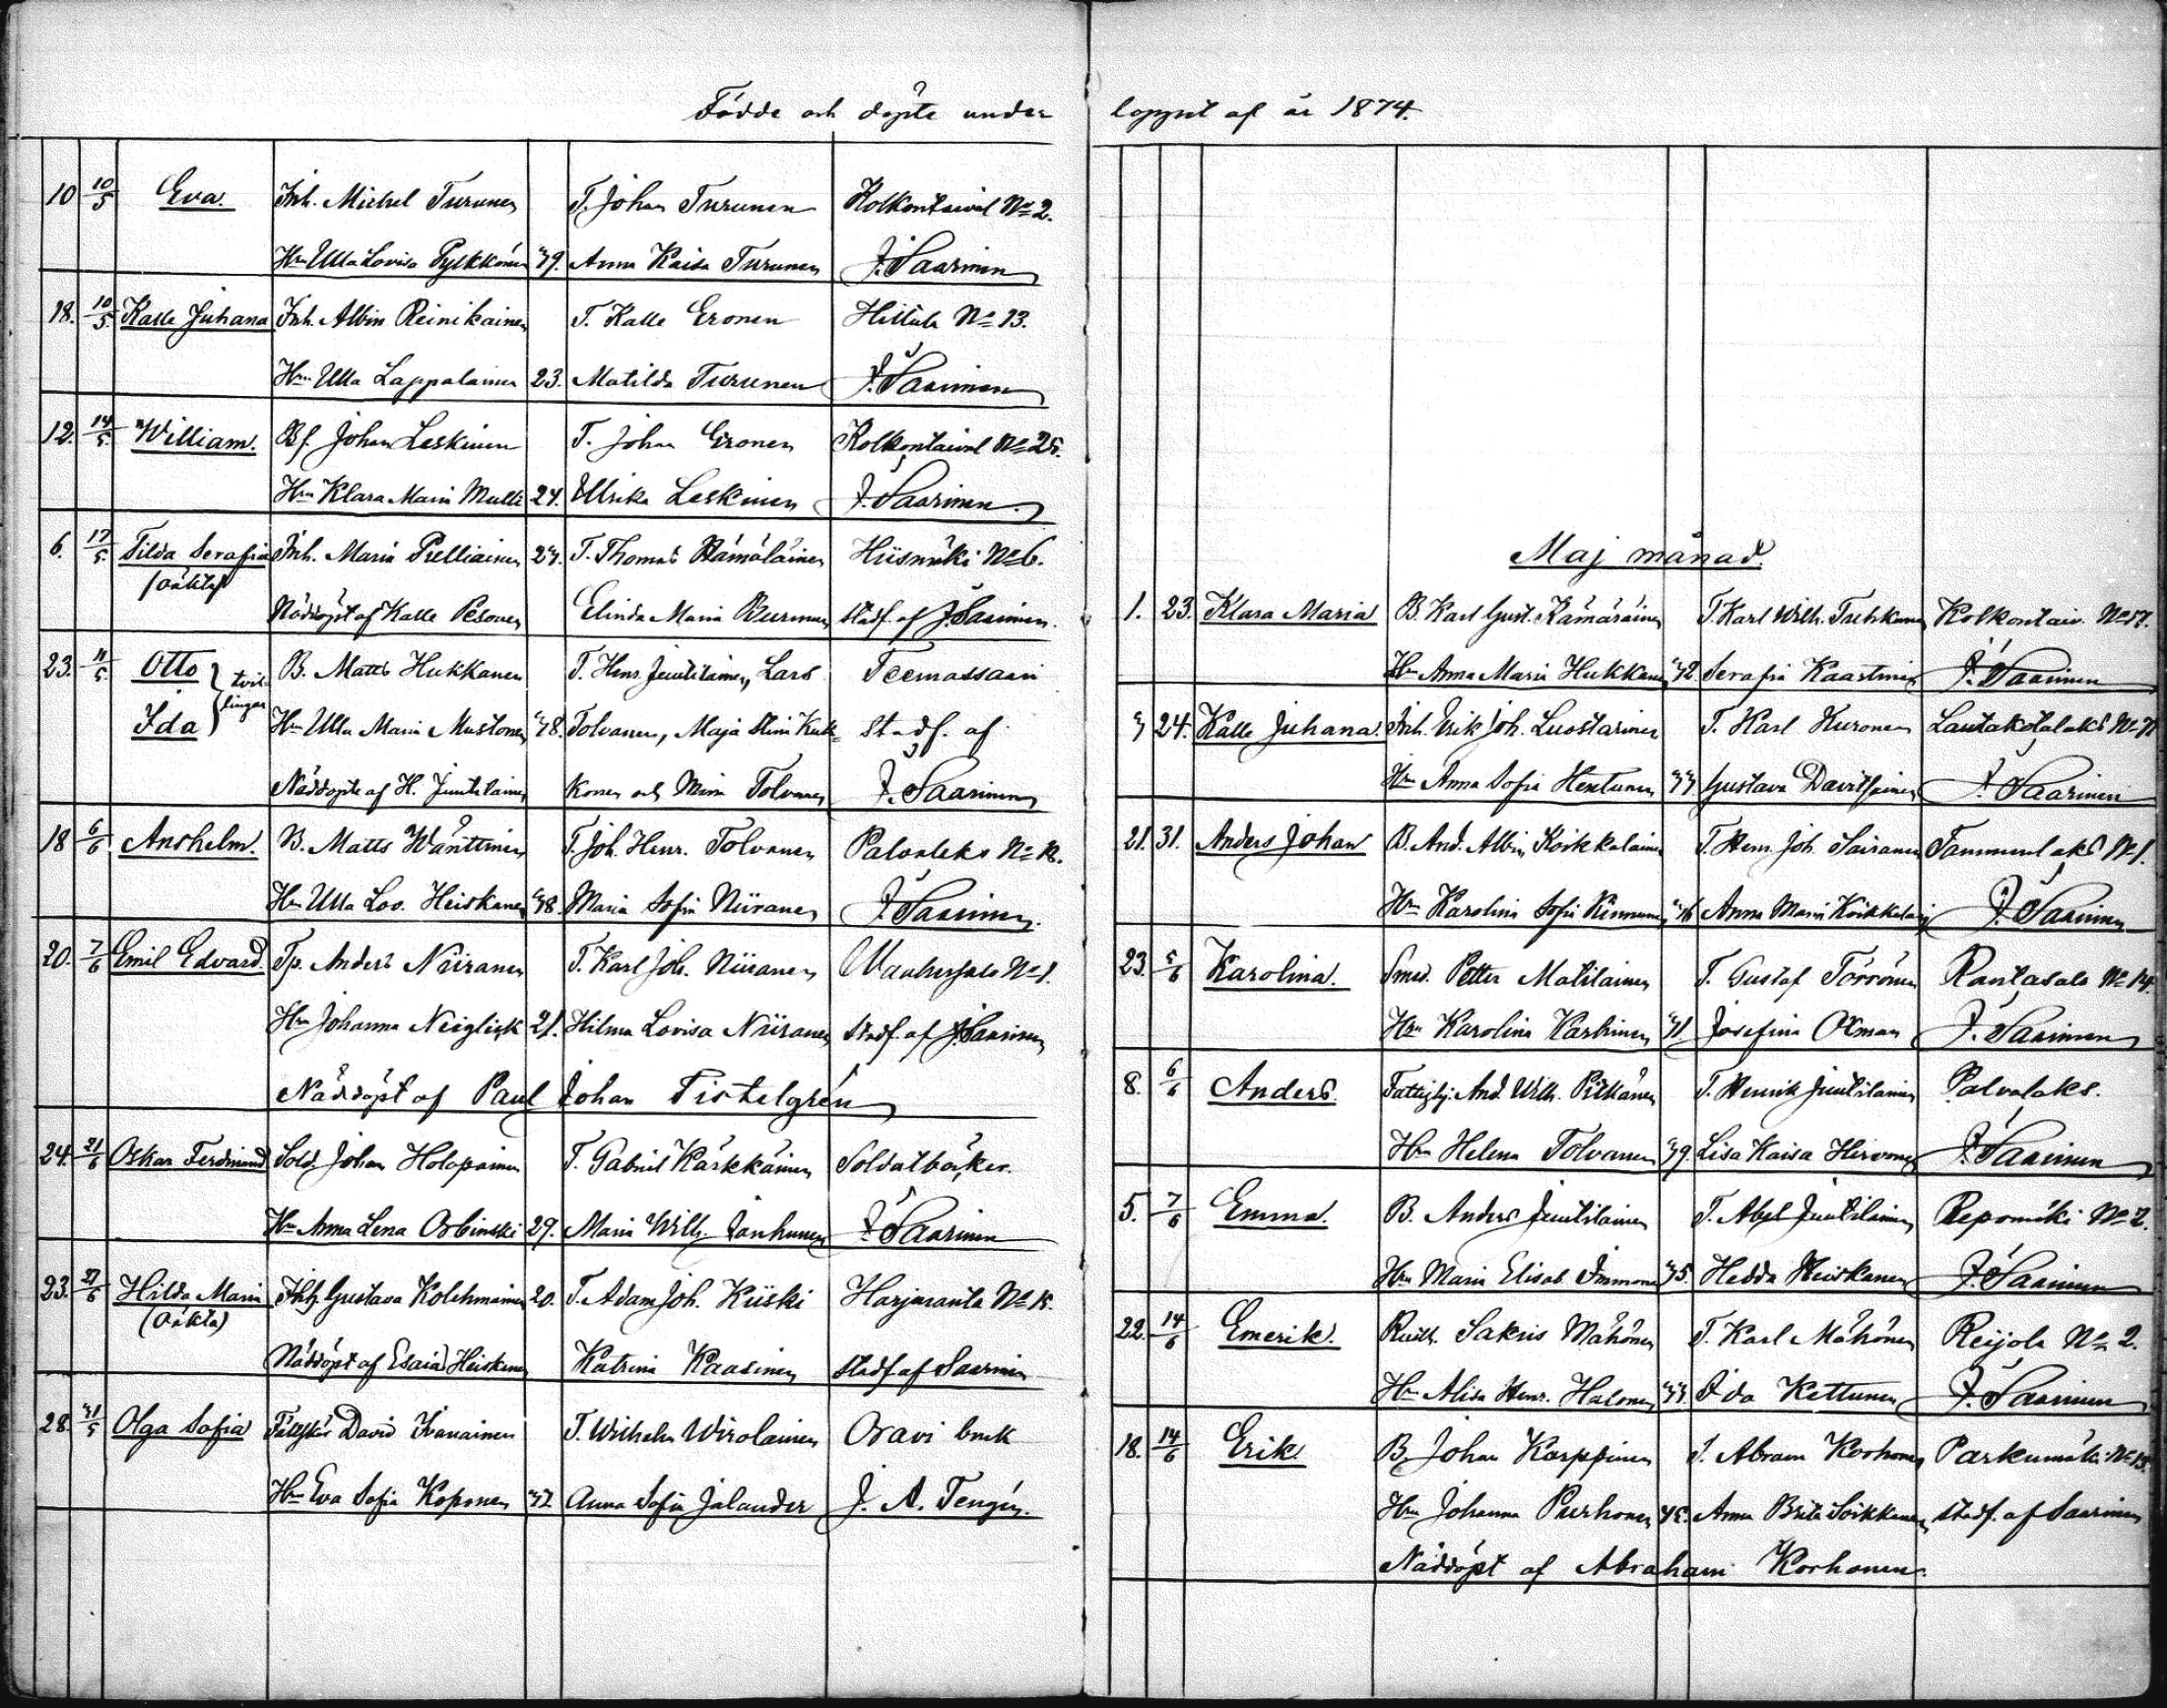 Födde och döpte under loppet af år 1874.
10 10/5 Eva. Inh. Michel Turunen T. Johan Turunen Kolkontaival No 2.
Hu Ulla Lovisa Pylkkönen 39. Anna Kaisa Turunen J. Saarinen
18. 10/5 Kalle Juhana Inh. Albin Reinikainen T. Kalle Eronen No 13.
Hu Ulla Lappalainen 23. Matilda Turunen J. Saarinen
12. 14/5 William. Bf. Johan Leskinen T. Johan Eronen Kolkontaival No 25.
Hu Klara Maria 24. Ulrika Leskinen J. Saarinen
6. 17/5 Tilda Serafia Inh. Maria Pulliainen T. Thomas Hämäläinen Hiismäki No 6.
(oäkta)
Nöddöpt af Kalle Pesonen Elinda Maria stadf. af J. Saarinen
23. Otto } tvil- B. Matts Hukkanen T. Henr. Juutilainen, Lars Teemassaari
Ida } lingar Hu Ulla Maria Mustonen 38. Tolvanen, Maja Stina Kuk- stadf. af
Nöddöpte af H. Juutilainen konen och Mina Tolvanen J. Saarinen
18 6/6 Anshelm. B. Matts Wänttinen T. Joh. Henr. Tolvanen Palvalaks No 12.
Hu Ulla Lov. Heiskanen 38. Maria Sofia Niiranen J. Saarinen
20. 7/6 Emil Edvard. Tp. Anders Niiranen T. Karl Joh. Niiranen No 1.
Hu Johanna Neiglick 21. Hilma Lovisa Niiranen stadf. af J. Saarinen
Nöddöpt af Paul Johan Tistelgrén
24. 21/6 Oskar Ferdinand Sold. Johan Holopainen T. Gabriel Kärkkäinen Soldatböker
Hu Anna Lena Orbinski 29. Maria Wilh. Janhunen J. Saarinen
23. 27/6 Hilda Maria Gustava Kolehmainen 20. T. Adam Joh. Kiiski Harjuranta No 15.
(oäkta)
Nöddöpt af Esaias Heiskanen Katrina Kaasinen stadf af Saarinen
28. 31/5 Olga Sofia David Ivanainen T. Wilhelm Wirolainen Oravi bruk
Hu Eva Sofia Koponen 32 Anna Sofia Jalander J. A. Tengén.
Maj månad.
1. 23. Klara Maria B. Karl Gust. Kämäräinen T. Karl Wilh. Kolkontaiv. No 17.
Hu Anna Maria Hukkanen 32 Serafia Kaartinen J. Saarinen
3 24. Kalle Juhana. Inh. Erik Joh. Luostarinen T. Karl Kuronen Lautakotalaks
Hu Anna Sofia Hentunen 33 Gustava Davitsainen J. Saarinen
21. 31. Anders Johan B. And. Albin Koikkalainen T. Henr. Joh. Sairanen Tammenlaks No 1.
Hu Karolina Sofia Kinnunen 36 Anna Maria Koikkalainen J. Saarinen
23. 5/6 Karolina. Smed. Petter Matilainen T. Gustaf Törrönen Rantasalo No 14.
Hu Karolina Karhinen 31 Josefina Oxman J. Saarinen
8. 6/6 Anders. Fattighj. And. Wilh. Pitkänen T. Henrik Juutilainen Palvalaks.
Hu Helena Tolvanen 39. Lisa Kaisa Hirvonen J. Saarinen
5. 7/6 Emma. B. Anders Juutilainen T. Abel Juutilainen Repomäki No 2.
Hu Maria Elisab. Immonen 35. Hedda Heiskanen J. Saarinen
22. 14/6 Emerik. Sakris Mähönen T. Karl Mähönen Reijola No 2.
Hu Alisa Henr. Halonen 33. Ida Kettunen J. Saarinen
18. 14/6 Erik. B. Johan Karppinen T. Abram Korhonen Parkumäki No 13.
Hu Johanna Purhonen Anna Brita Soikkanen stadf. af Saarinen
Nöddöpt af Abraham Korhonen.